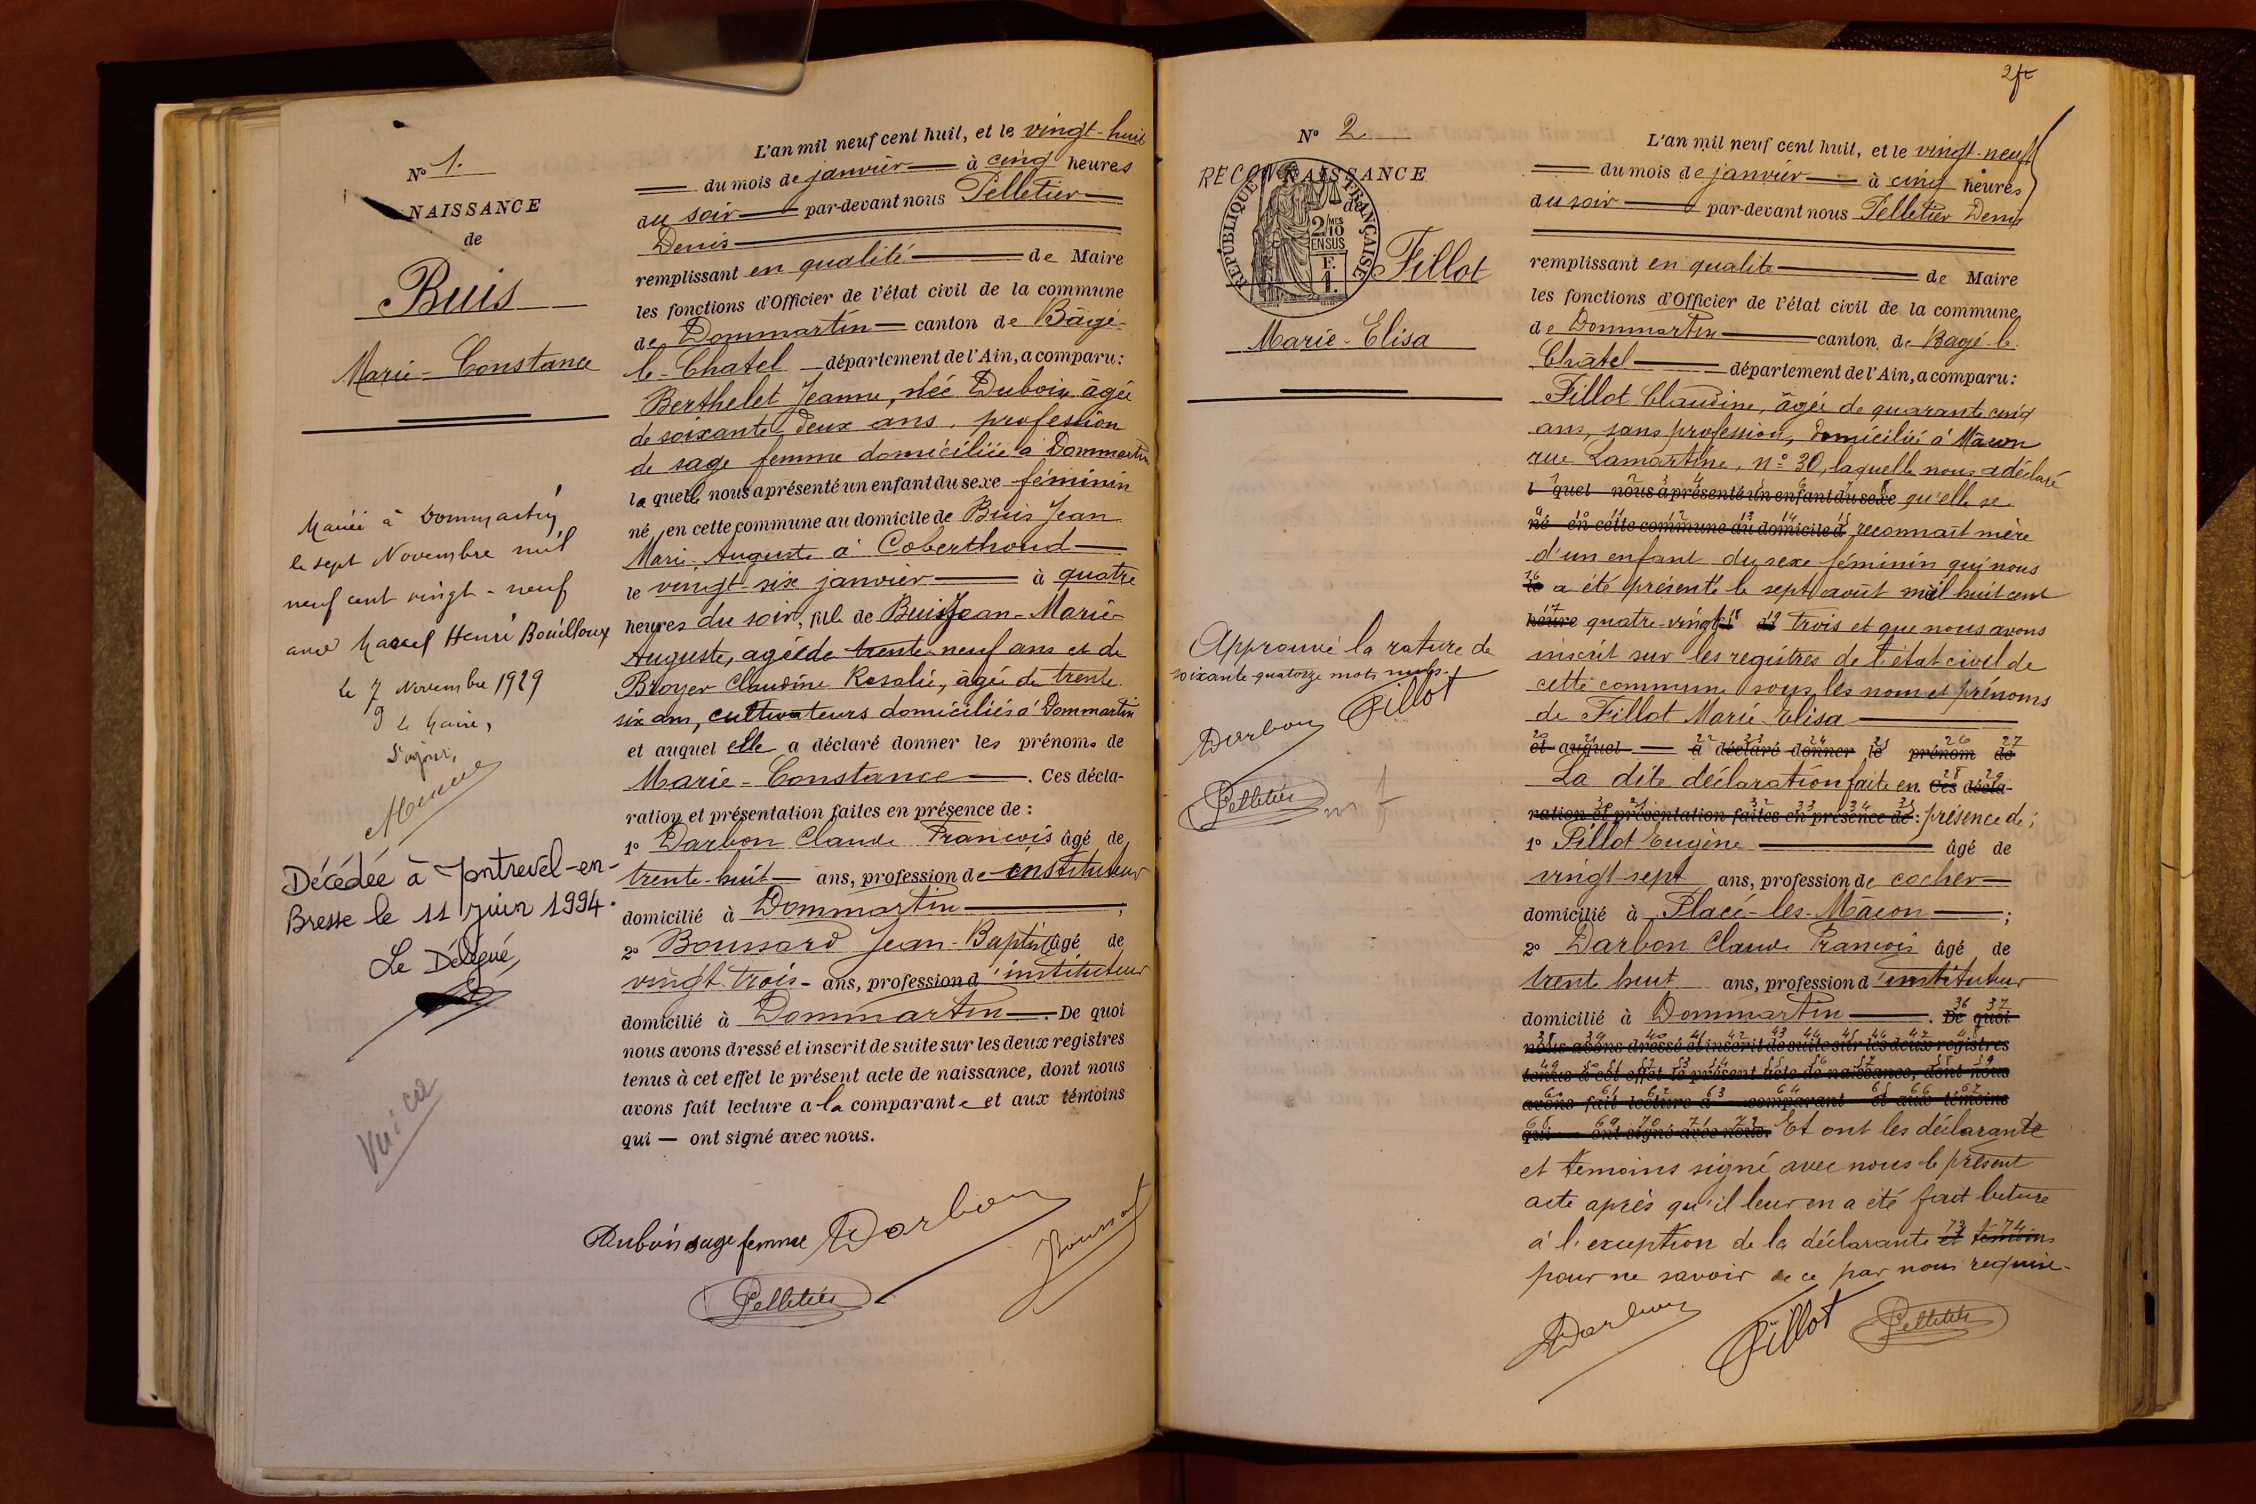 N° 1.
NAISSANCE
de
Buis
Marie-Constance
Mariée à Dommartin
le sept Novembre mil
neuf cent vingt-neuf
avec Marcel Henri Bouilloux
le 7 Novembre 1929
le Maire,
Décédée à Montrevel-en-
Bresse le 11 juin 1994.
Le Délégué,
L'an mil neuf cent huit, et le vingt-huit
du mois de janvier à cinq heures
du soir par-devant nous Pelletier
Denis
remplissant en qualité de Maire
les fonctions d'Officier de l'état civil de la commune
de Dommartin canton de Bâgé-
le-Chatel département de l'Ain, a comparu:
Berthelet Jeanne, née Dubois âgée
de soixante deux ans, profession
de sage femme domiciliée à Dommartin
laquelle nous a présenté un enfant du sexe féminin
né, en cette commune au domicile de Buis Jean
Marie Auguste à Coberthoud
le vingt-six janvier à quatre
heures du soir, fille de Buis Jean-Marie-
Auguste, agé de trente-neuf ans et de
Broyer Claudine Rosalie, âgée de trente
six ans, cultivateurs domiciliés à Dommartin
et auquel elle a déclaré donner les prénoms de
Marie-Constance. Ces décla-
ration et présentation faites en présence de :
1° Darbon Claude François âgé de
trente-huit ans, profession de instituteur
domicilié à Dommartin ;
2° Boussard Jean-Baptiste âgé de
vingt-trois ans, profession d'instituteur
domicilié à Dommartin. De quoi
nous avons dressé et inscrit de suite sur les deux registres
tenus à cet effet le présent acte de naissance, dont nous
avons fait lecture a la comparante et aux témoins
qui — ont signé avec nous.
Dubois sage femme Darbon
Boussard
Pelletier
2 fc
N° 2
RECONNAISSANCE
de
RÉPUBLIQUE FRANÇAISE
2/10
EN SUS
F.
1.
Fillot
Marie-Elisa
Approuvé la rature de
soixante quatorze mots nuls.
Darbon Fillot
Pelletier
L'an mil neuf cent huit, et le vingt-neuf
du mois de janvier à cinq heures
du soir par-devant nous Pelletier Denis
remplissant en qualité de Maire
les fonctions d'Officier de l'état civil de la commune
de Dommartin canton de Bagé-le-
Châtel département de l'Ain, a comparu:
Fillot Claudine, âgée de quarante cinq
ans, sans profession, domiciliée à Mâcon
rue Lamartine, n° 30, laquelle nous a déclaré
l quel nous a présenté un enfant du sexe qu'elle se
né en cette commune au domicile d reconnaît mère
d'un enfant du sexe féminin qui nous
le a été présenté le sept août mil huit cent
heure quatre-vingt trois et que nous avons
inscrit sur les registres de l'état civil de
cette commune sous les nom et prénoms
de Fillot Marie Elisa
et auquel a déclaré donner le prénom de
La dite déclaration faite en Ces décla-
ration et présentation faites en présence de : présence de ;
1° Fillot Eugène âgé de
vingt-sept ans, profession de cocher
domicilié à Placé-les-Mâcon ;
2° Darbon Claude François âgé de
trente huit ans, profession d'instituteur
domicilié à Dommartin. De quoi
nous avons dressé et inscrit de suite sur les deux registres
tenus à cet effet le présent acte de naissance, dont nous
avons fait lecture à comparant et aux témoins
qui ont signé avec nous. Et ont les déclarante
et témoins signé avec nous le présent
acte après qu'il leur en a été fait lecture
à l'exception de la déclarante et témoins
pour ne savoir de ce par nous requise.
Darbon Fillot Pelletier